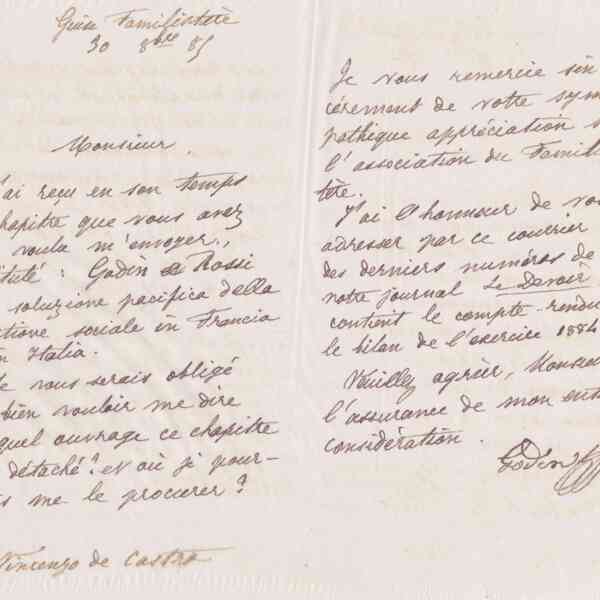 Guise Familistère
30 8bre 85
Monsieur.
'ai reçu en son temps
chapitre que vous avez
voulu m'envoyer,
titulé : Godin e Rossi
soluzione pacifica della
stione sociale in Francia
n Italia.
e vous serais obligé
bien vouloir me dire
quel ouvrage ce chapitre
détaché ? et où je pour-
is me le procurer ?
Vincenzo de Castro
Je vous remercie sin
cèrement de votre sym
pathique appréciation s
l'association du Famil
tère.
J'ai l'honneur de vou
adresser par ce courrier
des derniers numéros de
notre journal Le Devoir
contient le compte-rendu
le bilan de l'exercice 1884
Veuillez agréer, Monsieu
l'assurance de mon enti
considération.
Godin